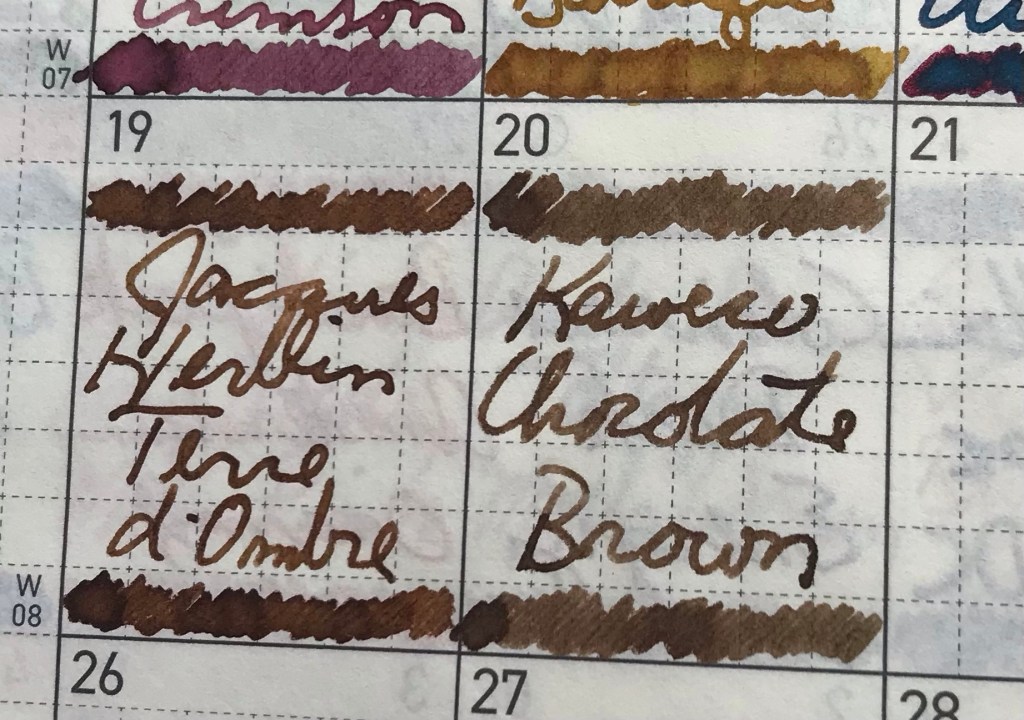 Crimson
W
07
19
20
21
Jacques
Herbin
Terre
d'Ombre
Kaweco
Chocolate
Brown
W
08
26
27
28